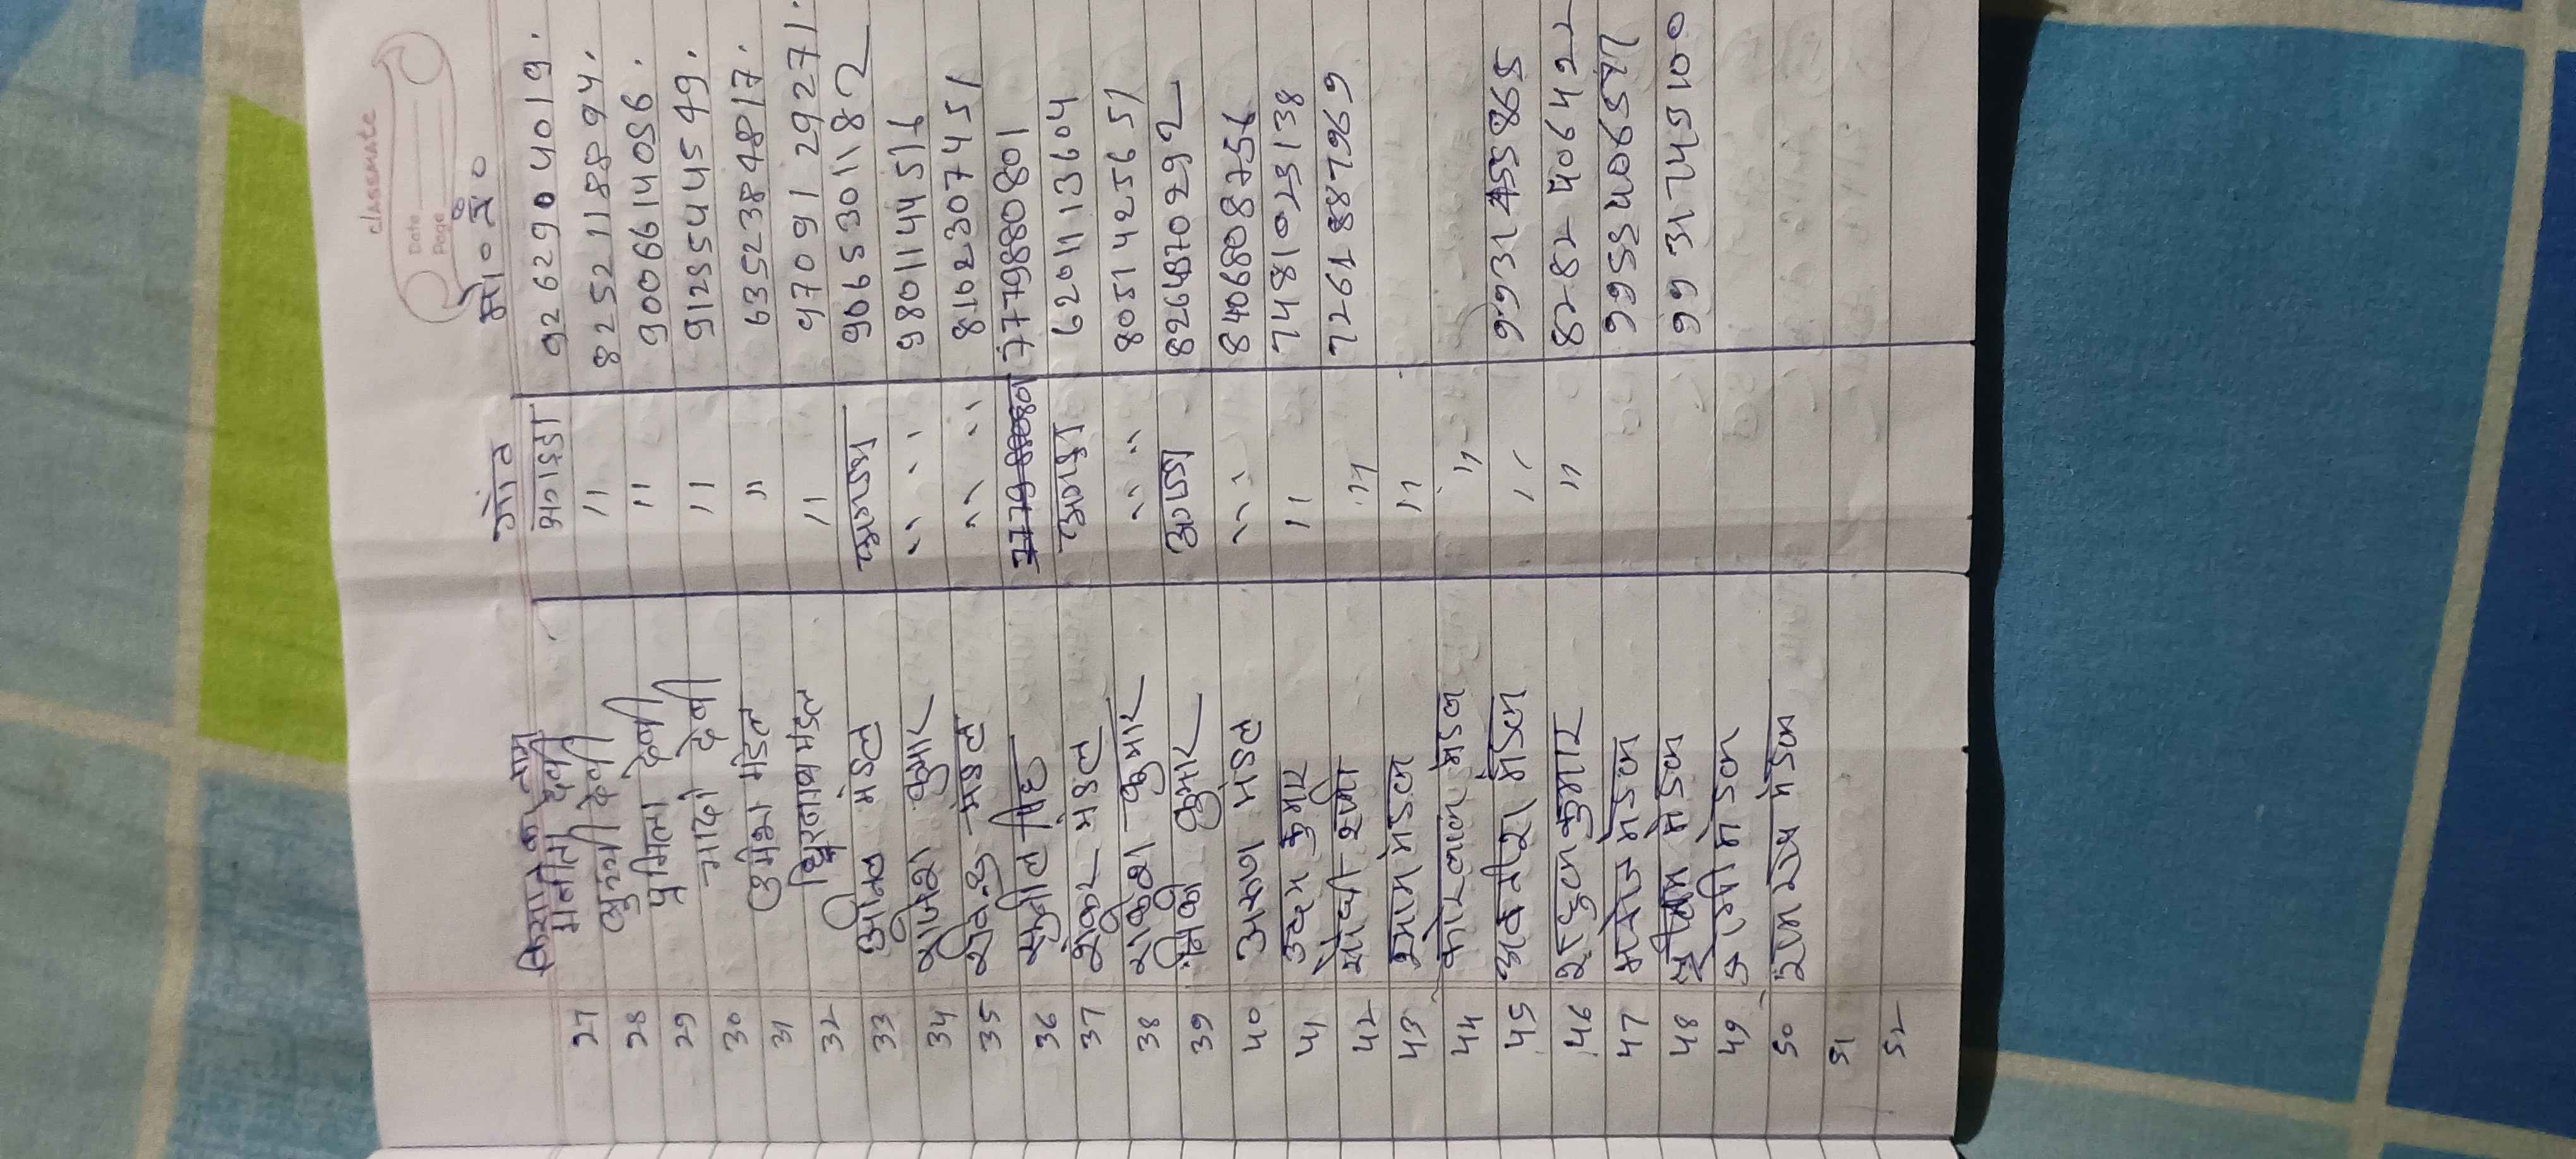 classmate
Date
Page
किसान का नाम गाँव मो० नं०
27 मनीता देवी 9262904019.
28 देवी 〃 8252118894.
29 प्रमिला देवी 〃 9006614056.
30 देवी 〃 9125544549.
31 उमेश मंडल 〃 6352384817.
32 मंडल 〃 9709129271.
33 अनिल मंडल 9065301182
34 राजेश कुमार 〃 〃 9801144516
35 मंडल 〃 〃 8102307451
36 सुनील सिंह 7779880801
37 शंकर मंडल 6201113604
38 राकेश कुमार 〃 〃 8051425651
39 कुमार 8264870292
40 अरुण मंडल 〃 〃 8406808756
41 उदय कुमार 〃 7481025138
42 〃 7261887969
43 श्याम मंडल 〃
44 मंडल 〃
45 अवनीश मंडल 〃 9931455865
46 राहुल कुमार 〃 8282406422
47 मनोज मंडल 9955406577
48 मंडल 9931745100
49 मंडल
50 मंडल
51
52